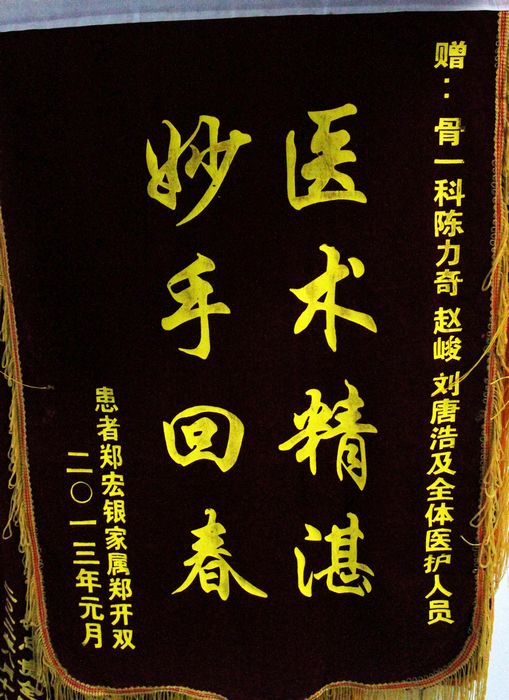 赠：骨一科陈力奇 赵峻 刘唐浩及全体医护人员
医术精湛
妙手回春
患者郑宏银家属郑开双
二〇一三年元月